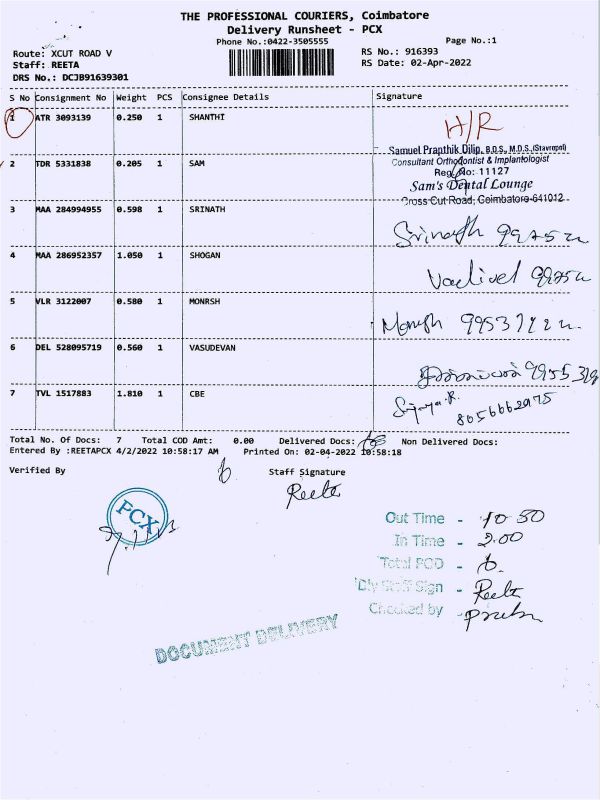 THE PROFESSIONAL COURIERS, Coimbatore
Delivery Runsheet - PCX
Phone No.:0422-3505555
Page No.:1
Route: XCUT ROAD V
RS No.: 916393
Staff: REETA
RS Date: 02-Apr-2022
DRS No.: DCJB91639301
S No Consignment No Weight PCS Consignee Details Signature
1 ATR 3093139 0.250 1 SHANTHI H/R
Samuel Pranthik Dilip, B.D.S., M.D.S.,(Stavropol)
Consultant Orthodontist & Implantologist
2 TDR 5331838 0.205 1 SAM Reg No: 11127
Sam's Dental Lounge
Cross Cut Road, Coimbatore-641012
3 MAA 284994955 0.598 1 SRINATH Srinath
4 MAA 286952357 1.050 1 SHOGAN
5 VLR 3122007 0.580 1 MONRSH
6 DEL 528095719 0.560 1 VASUDEVAN
7 TVL 1517883 1.810 1 CBE 8056662975
Total No. Of Docs: 7 Total COD Amt: 0.00 Delivered Docs: Non Delivered Docs:
Entered By :REETAPCX 4/2/2022 10:58:17 AM Printed On: 02-04-2022 10:58:18
Verified By Staff Signature
Reeta
PCX
Out Time - 10 50
In Time - 2.00
Total POD - 6.
Dly Staff Sign - Reeta
Checked by -
DOCUMENT DELIVERY